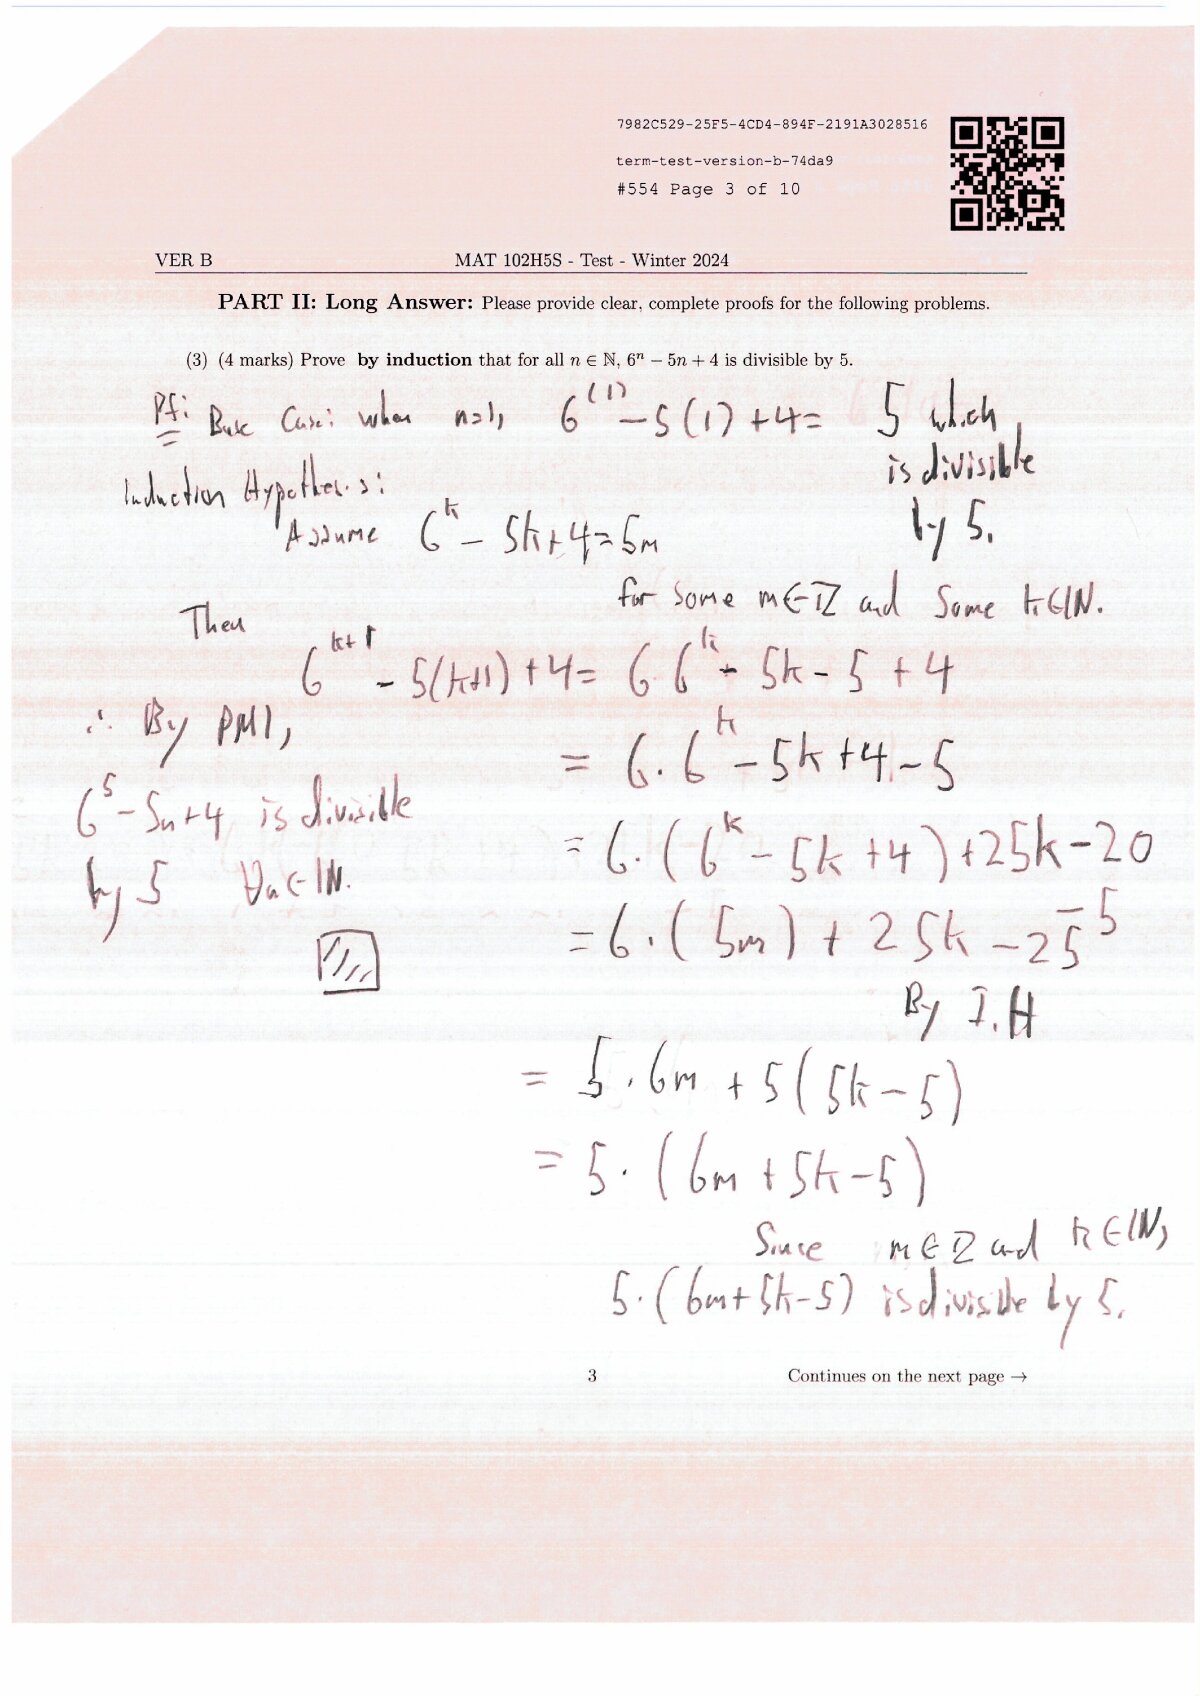 7982C529-25F5-4CD4-894F-2191A3028516
term-test-version-b-74da9
#554 Page 3 of 10
VER B MAT 102H5S - Test - Winter 2024
PART II: Long Answer: Please provide clear, complete proofs for the following problems.
(3) (4 marks) Prove by induction that for all n ∈ ℕ, 6ⁿ − 5n + 4 is divisible by 5.
Pf: Base Case: when n=1, 6^(1) - 5(1) + 4 = 5 which
is divisible
by 5.
Induction Hypothesis:
Assume 6^k - 5k+4=5m
for some m∈ℤ and some k∈ℕ.
Then
6^(k+1) - 5(k+1) + 4 = 6·6^k - 5k - 5 + 4
= 6·6^k - 5k + 4 - 5
= 6·(6^k - 5k + 4) + 25k - 20
- 5
= 6·(5m) + 25k - 25
By I.H
= 5·6m + 5(5k - 5)
= 5·(6m + 5k - 5)
Since m∈ℤ and k∈ℕ,
5·(6m+5k-5) is divisible by 5.
∴ By PMI,
6^5 - 5n+4 is divisible
by 5 ∀n∈ℕ.
3 Continues on the next page →